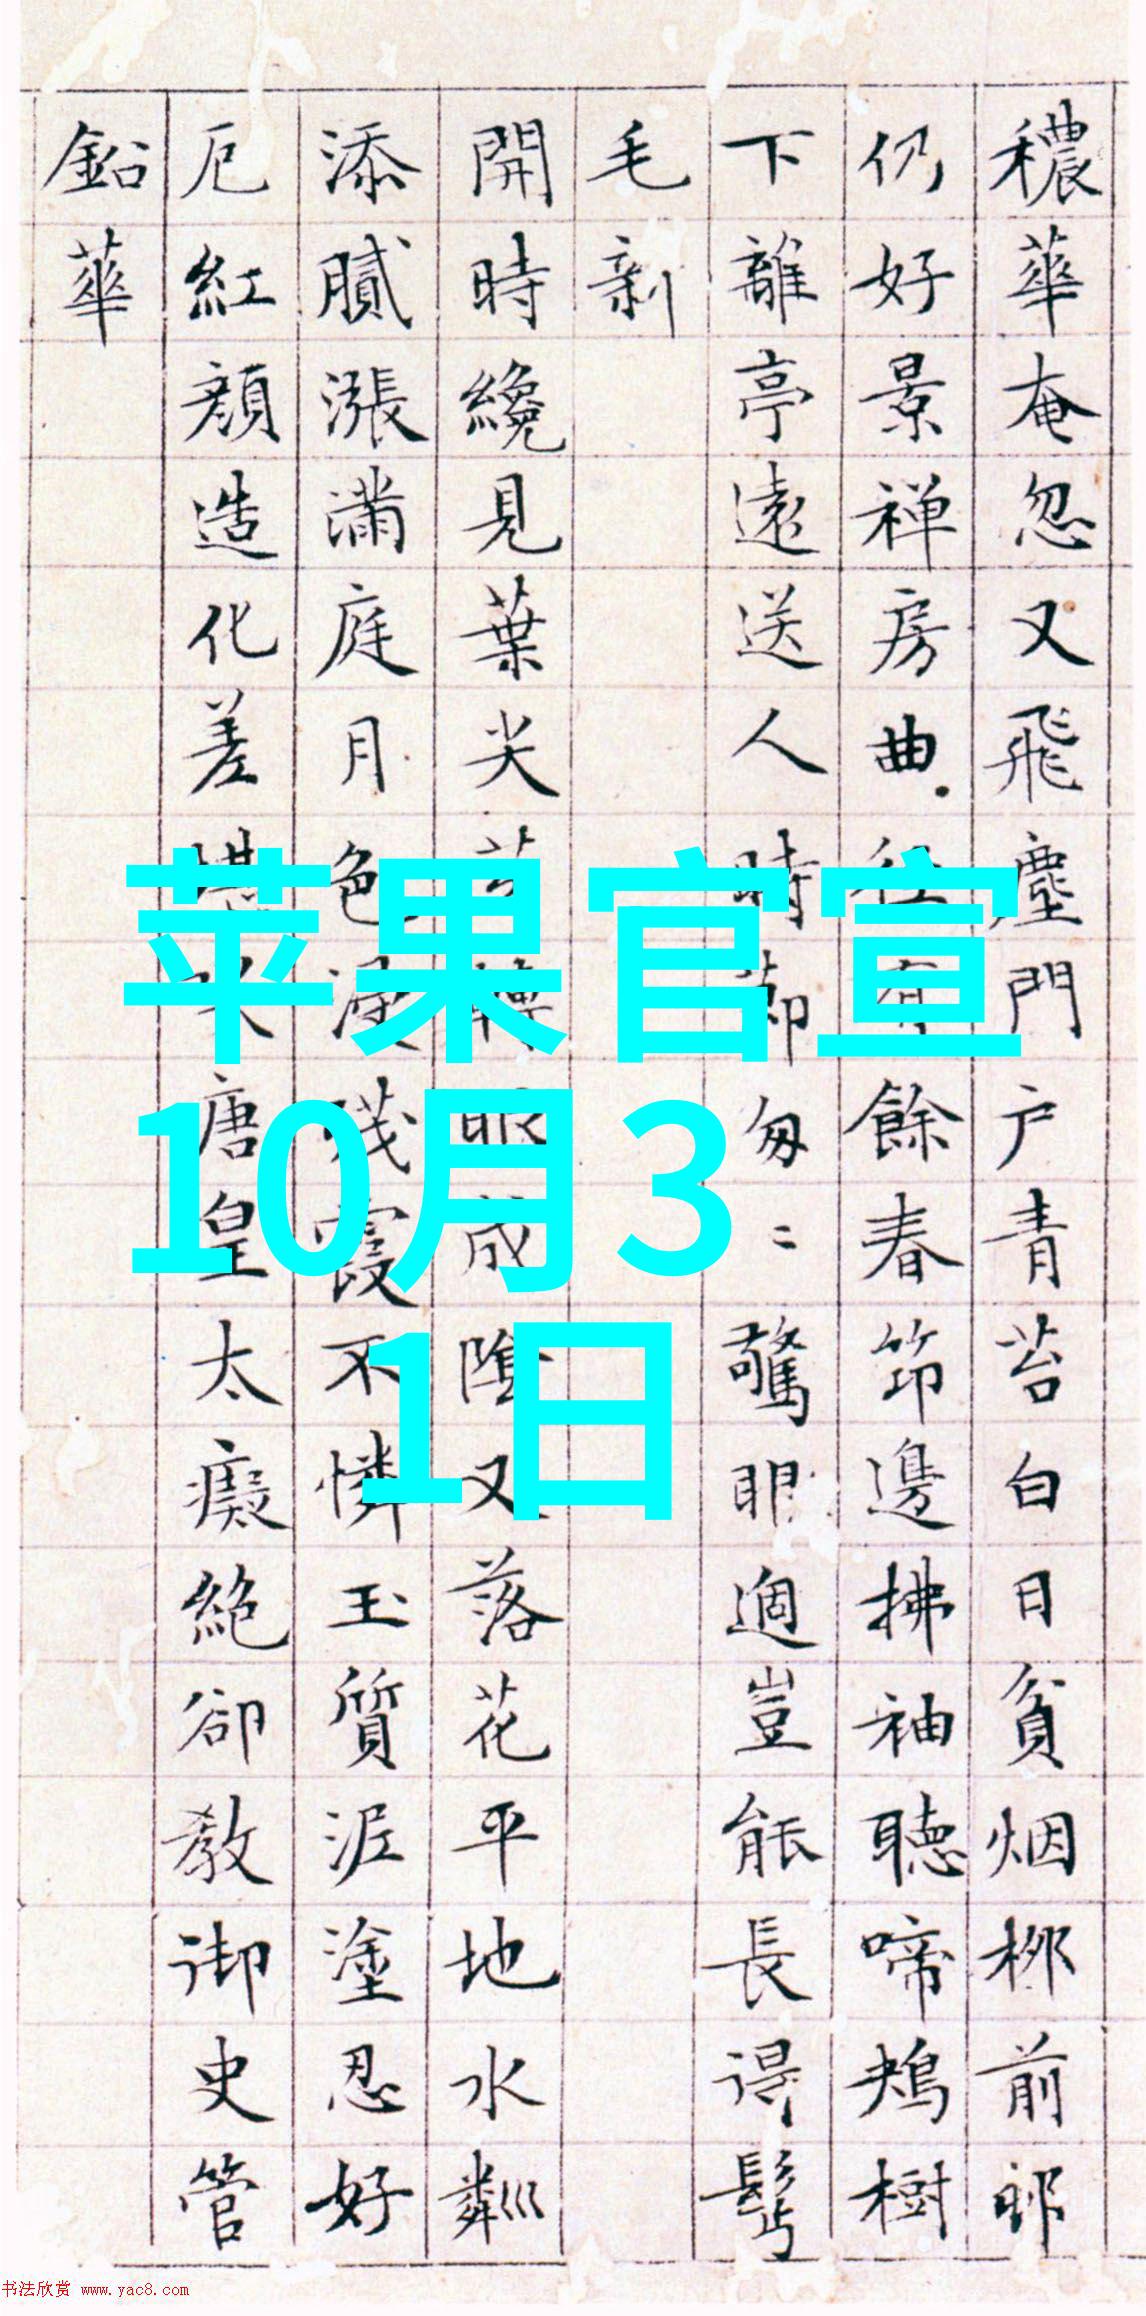 穠華奄忽又飛塵門户青苔白日貧烟栁前
仍好景禅房曲餘春笻邊拂袖聴啼鴂樹
下離亭遠送人時節匆〻驚眼過豈能長得
毛新
開時纔見葉尖成陰又落花平地水粼巛
添膩漲滿庭月色殘霞不憐玉質泥塗忍好
厄紅顔造化差唐皇太癡絶卻教御史管
鉛華
苹果官宣
10月3
1日
书法欣赏 www.yac8.com